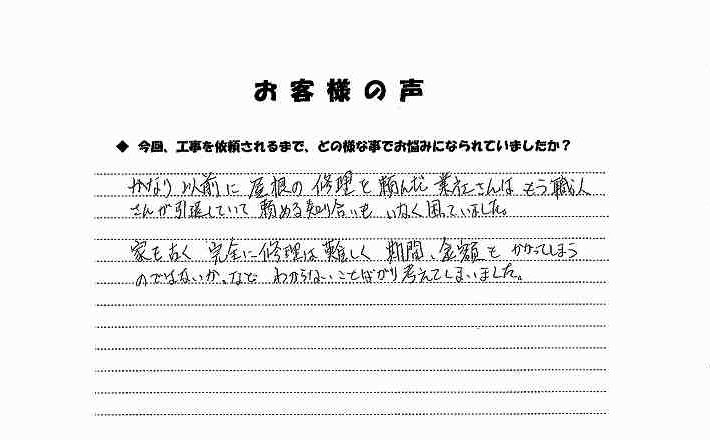 お客様の声
◆ 今回、工事を依頼されるまで、どの様な事でお悩みになられていましたか？
かなり以前に屋根の修理を頼んだ業社さんはもう職人
さんが引退していて頼める知り合いもいなく困っていました。
家も古く完全に修理は難しく期間、金額もかかってしまう
のではないか。など わからないことばかり考えてしまいました。